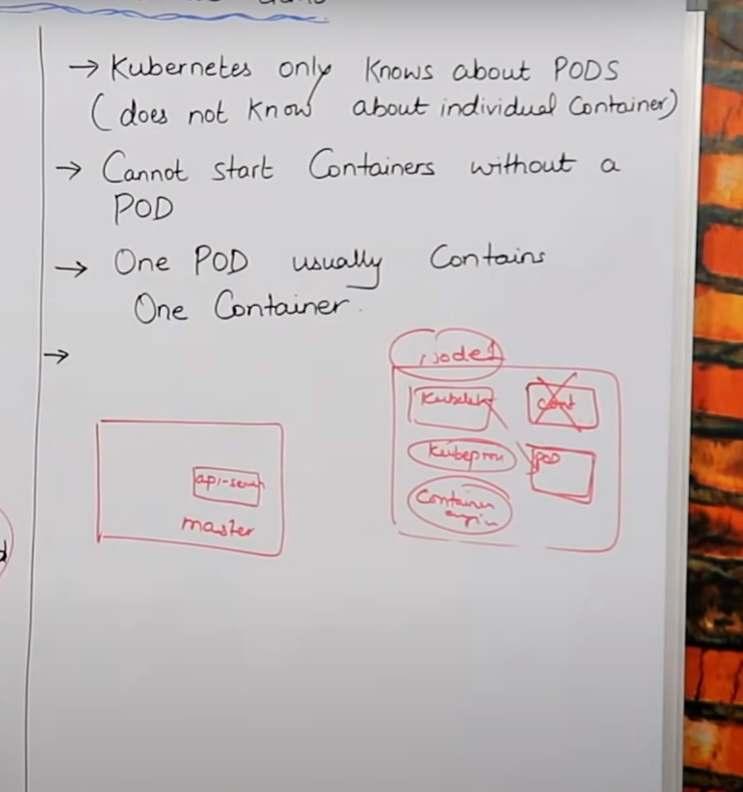 → Kubernetes only Knows about PODS
(does not Know about individual Container)
→ Cannot start Containers without a
POD
→ One POD usually Contains
One Container.
→
node1
Kubelet
cont
Kubeproxy
POD
Container
engin
api-serv
master